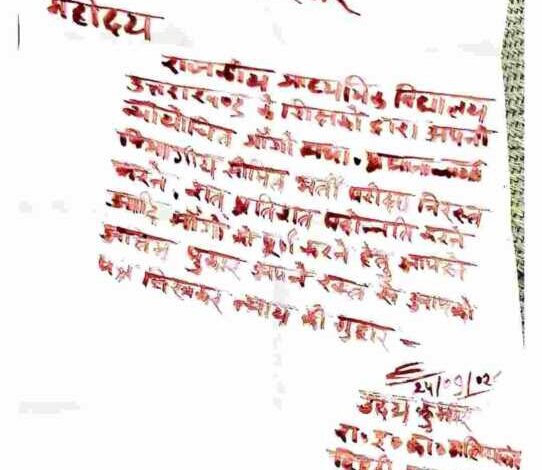 महोदय
राजकीय माध्यमिक विद्यालय
उत्तराखण्ड में शिक्षकों द्वारा अपनी
न्यायोचित माँगों यथा. प्रधानाचार्य
विभागीय सीमित भर्ती परीक्षा निरस्त
करने. शत प्रतिशत पदोन्नति करने
आदि माँगों को पूर्ण करने हेतु आपसे
अन्तिम पुकार अपने रक्त से आपको
पत्र लिखकर न्याय की गुहार -
24/09/02
उदय कुमार
रा. इ. का.